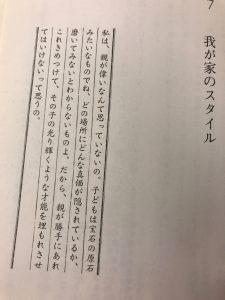 7
我が家のスタイル
私は、親が偉いなんて思っていないの。子どもは宝石の原石
みたいなものでね、どの場所にどんな真価が隠されているか、
磨いてみないとわからないものよ。だから、親が勝手にあれ
これきめつけて、その子の光り輝くような才能を埋もれさせ
てはいけないって思うの。